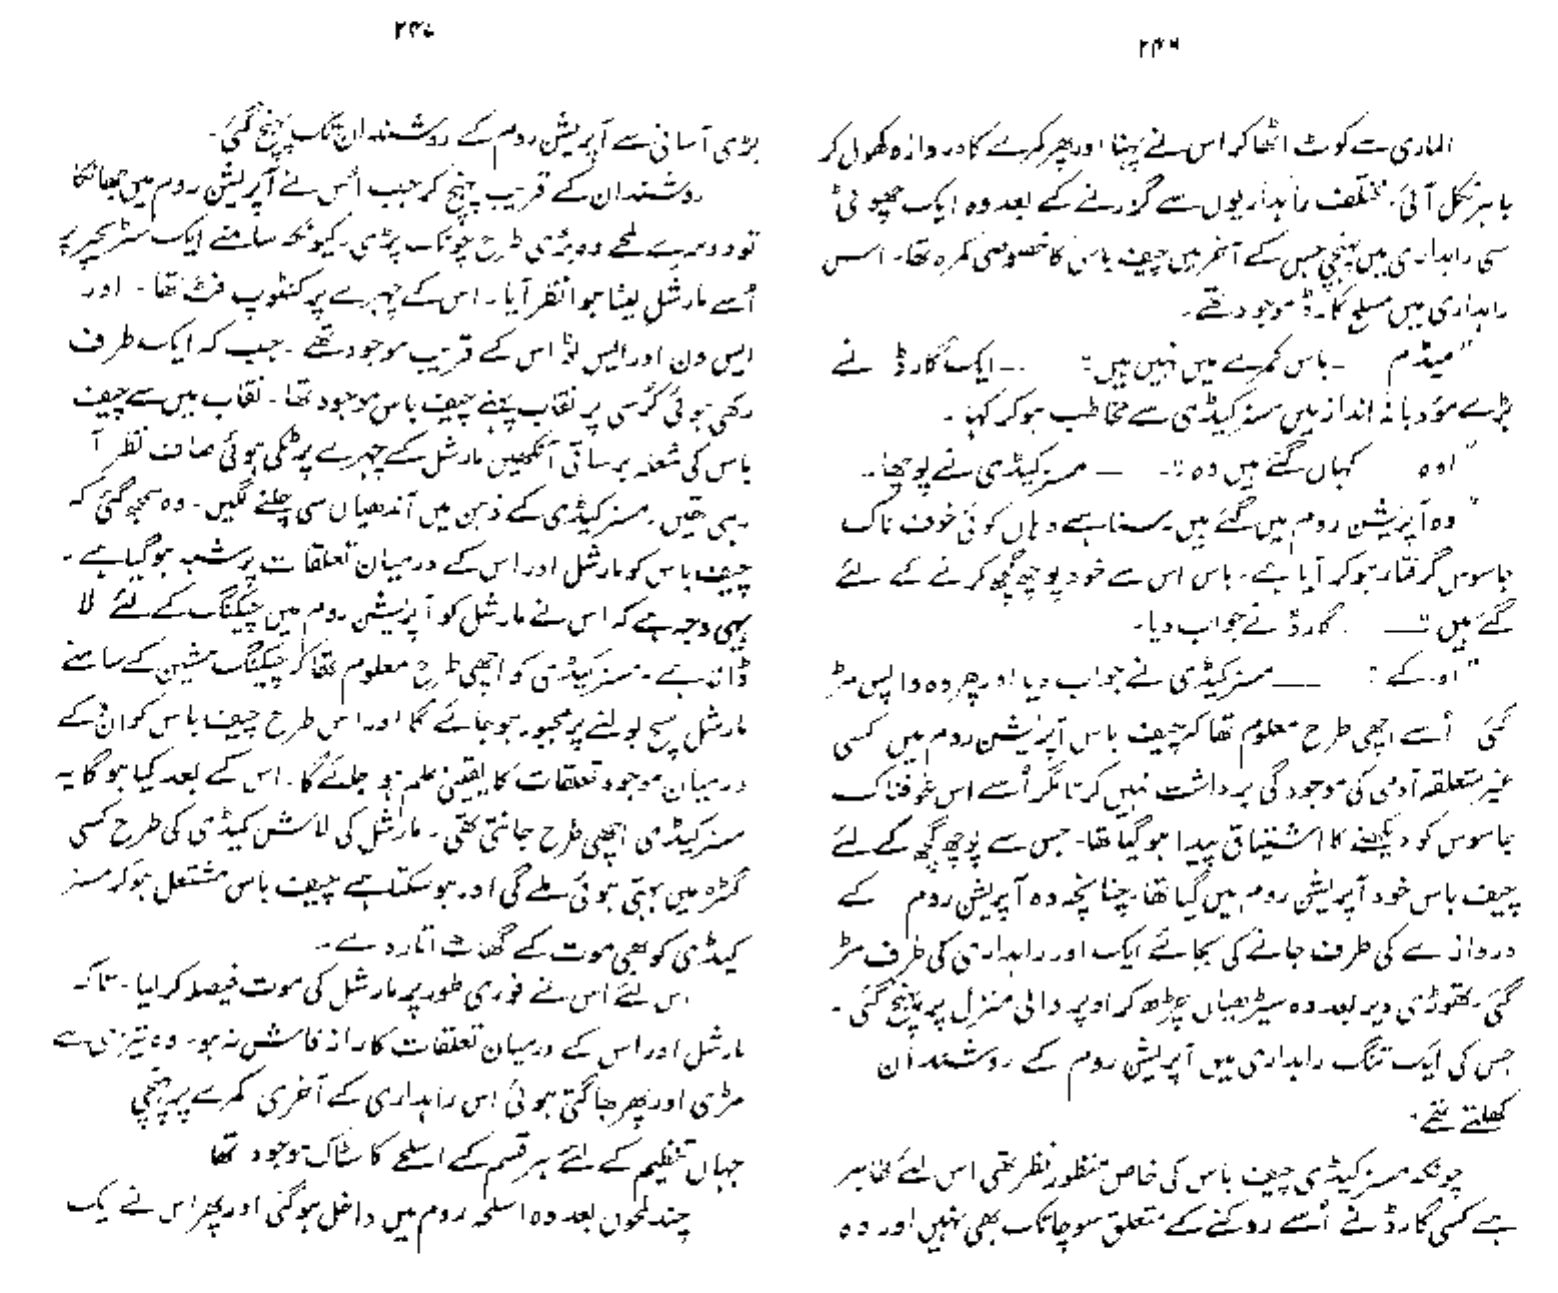 ۲۴۶
الماری سے کوٹ اٹھا کر اس نے پہنا اور پھر کمرے کا دروازہ کھول کر
باہر نکل آئی۔ مختلف راہداریوں سے گزرنے کے بعد وہ ایک چھوٹی
سی راہداری میں پہنچی جس کے آخر میں چیف باس کا خصوصی کمرہ تھا۔ اس
راہداری میں مسلح گارڈ موجود تھے۔
"میڈم ۔ باس کمرے میں نہیں ہیں"۔ ۔۔ ایک گارڈ نے
بڑے مؤدبانہ انداز میں مسز کیڈی سے مخاطب ہو کر کہا۔
"اوہ کہاں گئے ہیں وہ"۔ ــــ مسز کیڈی نے پوچھا۔
"وہ آپریشن روم میں گئے ہیں۔ سنا ہے وہاں کوئی خوف ناک
جاسوس گرفتار ہو کر آیا ہے۔ باس اس سے خود پوچھ گچھ کرنے کے لئے
گئے ہیں"۔ ــــ گارڈ نے جواب دیا۔
"او۔ کے" ــــ مسز کیڈی نے جواب دیا اور پھر وہ واپس مڑ
گئی اُسے اچھی طرح معلوم تھا کہ چیف باس آپریشن روم میں کسی
غیر متعلقہ آدمی کی موجودگی برداشت نہیں کرتا مگر اُسے اس خوفناک
جاسوس کو دیکھنے کا اشتیاق پیدا ہو گیا تھا۔ جس سے پوچھ گچھ کے لئے
چیف باس خود آپریشن روم میں گیا تھا۔ چنانچہ وہ آپریشن روم کے
دروازے کی طرف جانے کی بجائے ایک اور راہداری کی طرف مڑ
گئی۔ تھوڑی دیر بعد وہ سیڑھیاں چڑھ کر اوپر والی منزل پر پہنچ گئی۔
جس کی ایک تنگ راہداری میں آپریشن روم کے روشندان
کھلتے تھے۔
چونکہ مسز کیڈی چیف باس کی خاص منظور نظر تھی اس لئے ظاہر
ہے کسی گارڈ نے اُسے روکنے کے متعلق سوچا تک بھی نہیں اور وہ
۲۴۷
بڑی آسانی سے آپریشن روم کے روشندان تک پہنچ گئی۔
روشندان کے قریب پہنچ کر جب اُس نے آپریشن روم میں جھانکا
تو دوسرے لمحے وہ بڑی طرح چونک پڑی۔ کیونکہ سامنے ایک سٹریچر پر
اُسے مارشل لیٹا ہوا نظر آیا۔ اس کے چہرے پر کنٹوپ فٹ تھا۔ اور
ایس ون اور ایس ٹو اس کے قریب موجود تھے۔ جب کہ ایک طرف
رکھی ہوئی کرسی پر نقاب پہنے چیف باس موجود تھا۔ نقاب میں سے چیف
باس کی شعلہ برساتی آنکھیں مارشل کے چہرے پر ٹکی ہوئی صاف نظر آ
رہی تھیں۔ مسز کیڈی کے ذہن میں آندھیاں سی چلنے لگیں۔ وہ سمجھ گئی کہ
چیف باس کو مارشل اور اس کے درمیان تعلقات پر شبہ ہو گیا ہے۔
یہی وجہ ہے کہ اس نے مارشل کو آپریشن روم میں چیکنگ کے لئے لا
ڈالا ہے۔ مسز کیڈی کو اچھی طرح معلوم تھا کہ چیکنگ مشین کے سامنے
مارشل سچ بولنے پر مجبور ہو جائے گا اور اس طرح چیف باس کو ان کے
درمیان موجود تعلقات کا یقینی علم ہو جائے گا۔ اس کے بعد کیا ہو گا یہ
مسز کیڈی اچھی طرح جانتی تھی۔ مارشل کی لاش کیڈی کی طرح کسی
گٹر میں بہتی ہوئی ملے گی اور ہو سکتا ہے چیف باس مشتعل ہو کر مسز
کیڈی کو بھی موت کے گھاٹ اتار دے۔
اس لئے اس نے فوری طور پر مارشل کی موت فیصلہ کر لیا۔ تاکہ
مارشل اور اس کے درمیان تعلقات کا راز فاش نہ ہو۔ وہ تیزی سے
مڑی اور پھر بھاگتی ہوئی اس راہداری کے آخری کمرے پر پہنچی
جہاں تنظیم کے لئے ہر قسم کے اسلحے کا سٹاک موجود تھا
چند لمحوں بعد وہ اسلحہ روم میں داخل ہو گئی اور پھر اس نے ایک